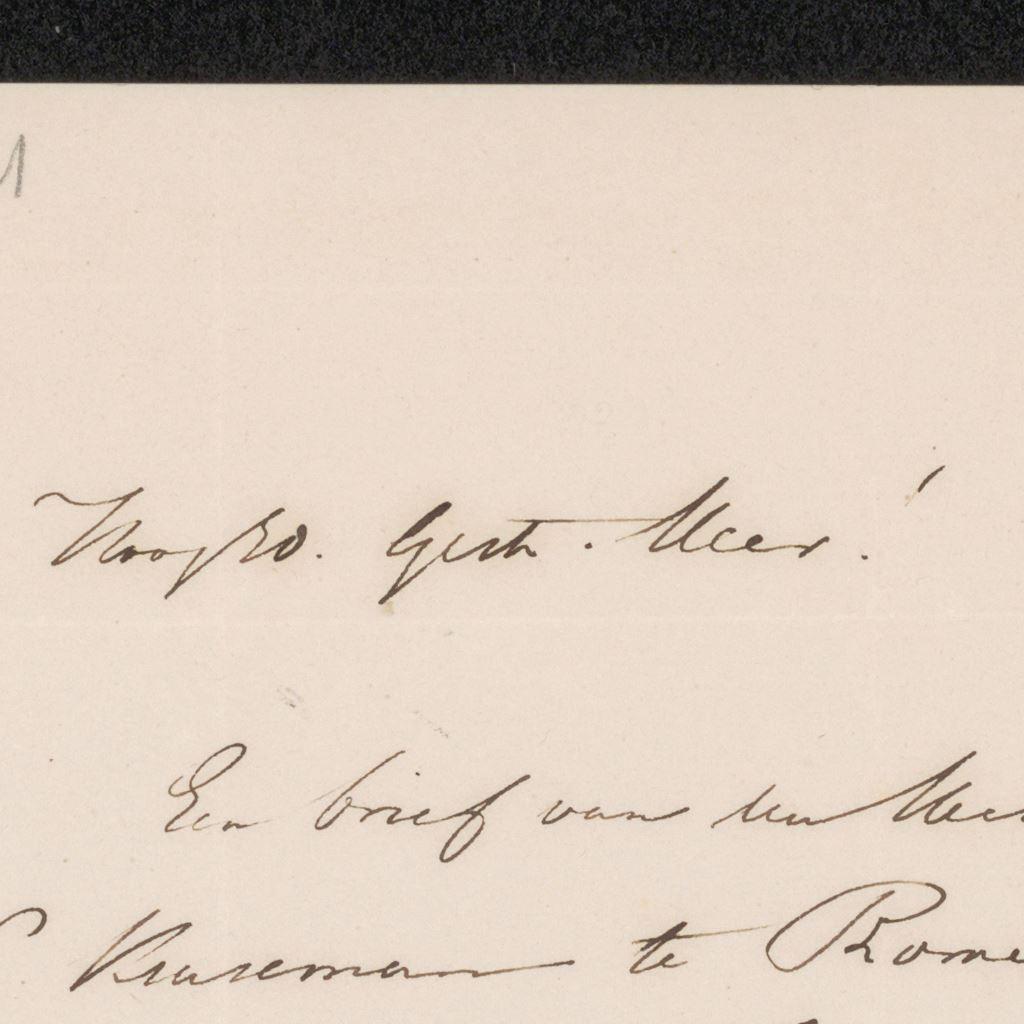 HoogEd. Gestr. Heer!
Een brief van den Heer
Kruseman te Rome